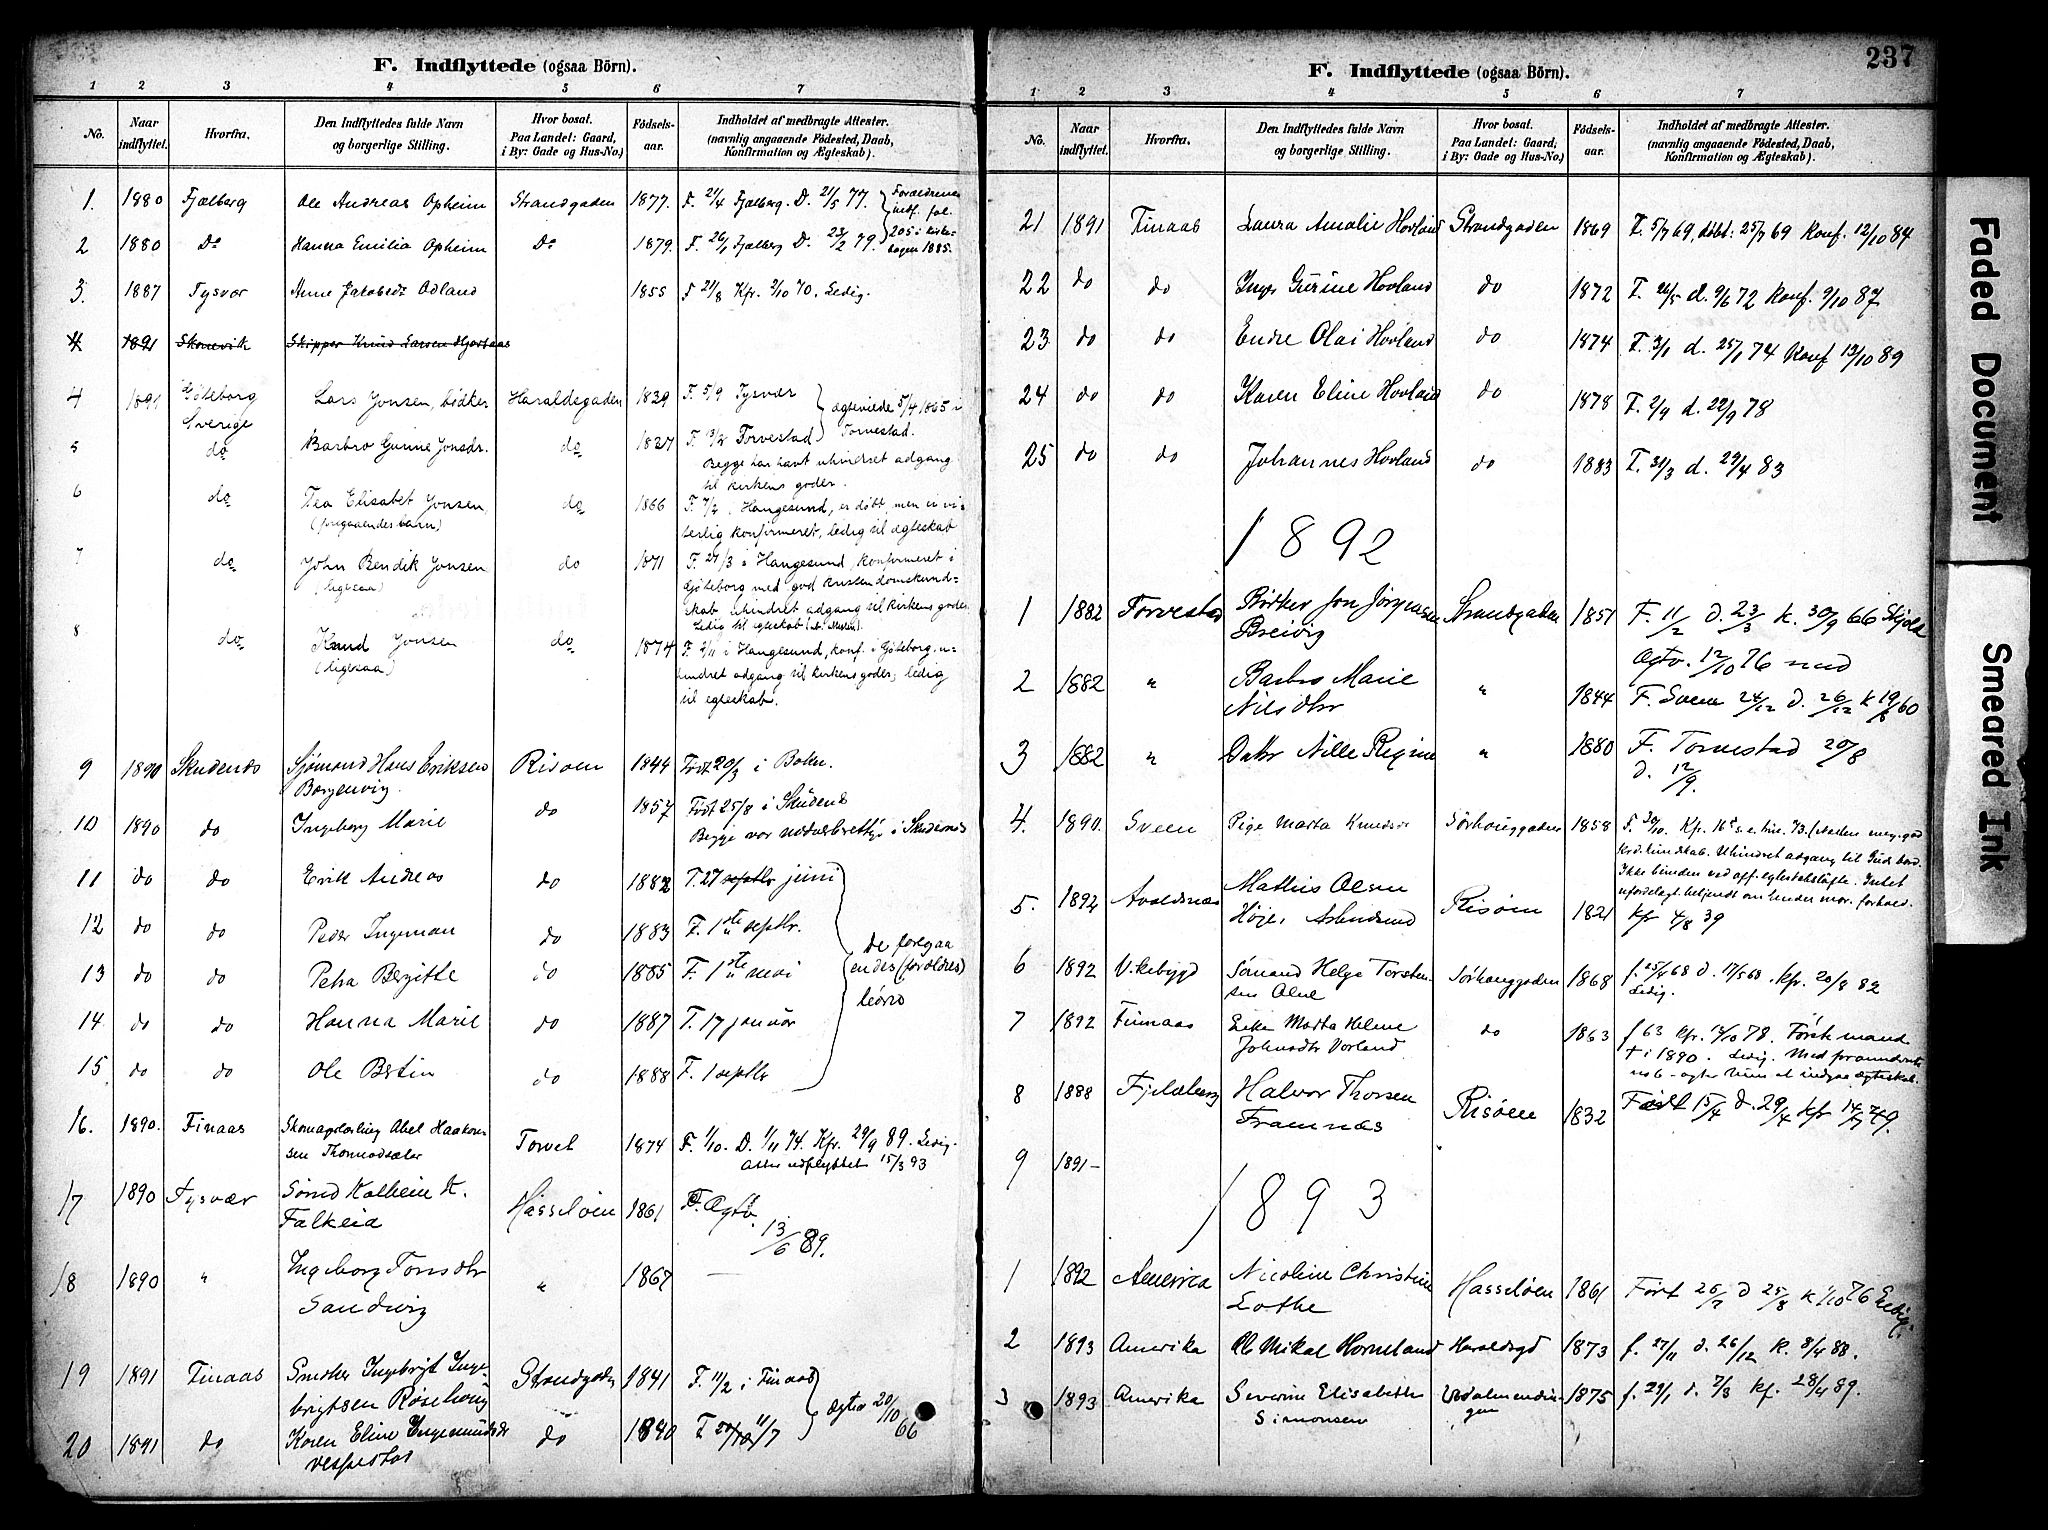 F. Indflyttede (ogsaa Börn).
1 2 3 4 5 6 7
No. Naar indflyttet. Hvorfra. Den Indflyttedes fulde Navn og borgerlige Stilling. Hvor bosat. Paa Landet: Gaard, i By: Gade og Hus-No.) Fødsels-aar. Indholdet af medbragte Attester. (navnlig angaaende Fødested, Daab, Konfirmation og Ægteskab).
1. 1880 Fjelberg Ole Andreas Opheim Strandgaden 1877. F. 21/4 Fjelberg. D. 21/5 77. Forældrene indf. fol. 205 i kirkebogen 1885.
2 1880 Do Hanna Emilia Opheim Do 1879. F. 26/1 Fjelberg D. 23/2 79.
3. 1887 Tysvær Anne Jakobsdr Odland 1855 F 21/8 Kfr. 2/10 70. Ledig.
4 1891 Skonevik Skipper Knud Larsen
4 1891 Göteborg Sverige Lars Jonsen, bödker Haraldsgaden 1839 F. 5/9 Tysvær ægteviede 5/4 1865 i Torvestad.
5 do Barbro Gurine Jonsdr. do 1837 F. 13/2 Torvestad
Begge har havt uhindret adgang
til kirkens goder.
6 do Tea Elisabet Jonsen do 1866 F. 7/2 i Haugesund, er døbt, men ei vi-
(foregaaendes barn) terlig konfirmeret, ledig til ægteskab
7 do John Bendik Jonsen do 1871 F. 27/3 i Haugesund, konfirmeret i
(ligesaa) Göteborg med god kristendomskund-
skab uhindret adgang til kirkens goder.
Ledig til egteskab
8 do Knud Jonsen do 1874 F. 2/11 i Haugesund, konf. i Göteborg, u-
(ligesaa) hindret adgang til kirkens goder; ledig
til egteskab.
9 1890 Skudenes Sjømand Hans Eriksen Risøen 1844 Født 20/3 i Bokn.
Borgenvig.
10 1890 do Ingeborg Marie do 1857 Født 25/8 i Skudenes
Begge var i Skudenes
11 do do Erik Andreas do 1882 F. 27 septbr juni
12 do do Peder Ingeman do 1883 F. 1ste septbr. De foregaa
13 do do Petra Bergitte do 1885 F. 1ste mai endes (forældres)
14 do do Hanna Marie do 1887 F. 17 januar
15 do do Ole Bertin do 1888 F. 1 septbr
16. 1890. Finaas Skomagerlærling Abel Haakon- Torvet 1874 F. 1/10. D. 1/11 74. Kfr. 29/9 89. Ledig.
sen Atter udflyttet 15/3 93
17 1890 Tysvær Sömd K. Hasseløen 1861 F. Ægtv.
Falkeid 13/6 89.
18 1890 " Ingeborg Tonsdtr " 1867 —
Sandvig
19 1891 Finaas Smeder Ingebrigt Inge- Strandgaden 1841 F. 11/2 i Finaas ægtev 20/10 66
brigtsen Røsehoug
20 1891 do Karen Eline do 1840 F. 11/7
237
F. Indflyttede (ogsaa Börn).
1 2 3 4 5 6 7
No. Naar indflyttet. Hvorfra. Den Indflyttedes fulde Navn og borgerlige Stilling. Hvor bosat. Paa Landet: Gaard, i By: Gade og Hus-No.) Fødsels-aar. Indholdet af medbragte Attester. (navnlig angaaende Fødested, Daab, Konfirmation og Ægteskab).
21 1891 Finaas Laura Amalie Hovland Strandgaden 1869 F. 5/7 69, døbt: 25/7 69 Konf. 12/10 84
22 do do Inger Gurine Hovland do 1872 F. 26/5 d. 9/6 72 Konf. 9/10 87
23 do do Endre Olai Hovland do 1874 F. 3/1 d. 25/1 74 Konf 13/10 89
24 do do Karen Eline Hovland do 1878 F. 2/9 d. 22/9 78
25 do do Johannes Hovland do 1883 F. 31/3 d. 29/4 83
1892
1 1882 Torvestad Bødker Jon Jörgensen Strandgaden 1851 F. 11/2 d. 23/3 k. 30/9 66 Skjold
Breivig Ægtv. 12/10 76 med
2 1882 " Barbro Marie " 1844 F. Sveen 24/12 d. 26/12 k 19/8 60
Nilsdtr
3 1882 " Datr Nille Regine " 1880 F. Torvestad 20/8
d. 12/9.
4. 1890. Sveen Pige Marta Knudsdr Sørhauggaden 1858 F. 30/10. Kfr. 16de s. e. trin. 73. (Attesten meg. god
krd. kundskab. Uhindret adgang til Guds bord.
Ikke bunden ved off. egteskabsløfte. Intet
ufordelagt. bekjendt om hendes mor. forhold.
5. 1892 Avaldsnæs Mathias Olsen Risøen 1821 Kfr 4/8 39
6 1892 Vikebygd Sømand Helge Torsten- Sørhauggaden 1868 f. 25/4 68 d. 17/5 68. Kfr. 20/8 82
sen Alne Ledig.
7 1892 Finnaas Enke Marta Helene do 1863 f 63 Kfr. 13/10 78. Første mand
Johnsdtr Vorland + i 1890. Ledig.
8 1888 Fjeldberg Halvor Thorsen Risøen 1832 Født 15/4 d. 29/4 Kfr 14/7 49.
Framnæs
9 1891 –
1893
1 1892 Amerika Nicoline Christine Hasseløen 1861 Født 26/7 d 25/8 k 1/10 76 Ledig.
Lothe
2 1893 Amerika Ole Mikal Horneland Haraldsgd 1873 f. 27/11 d. 26/12 K. 8/4 88.
3 1893 Amerika Severine Elisabeth Vedalmendin- 1875 f. 29/1 d. 7/3 Kf. 28/4 89.
Simonsen gen
Faded Document
Smeared Ink